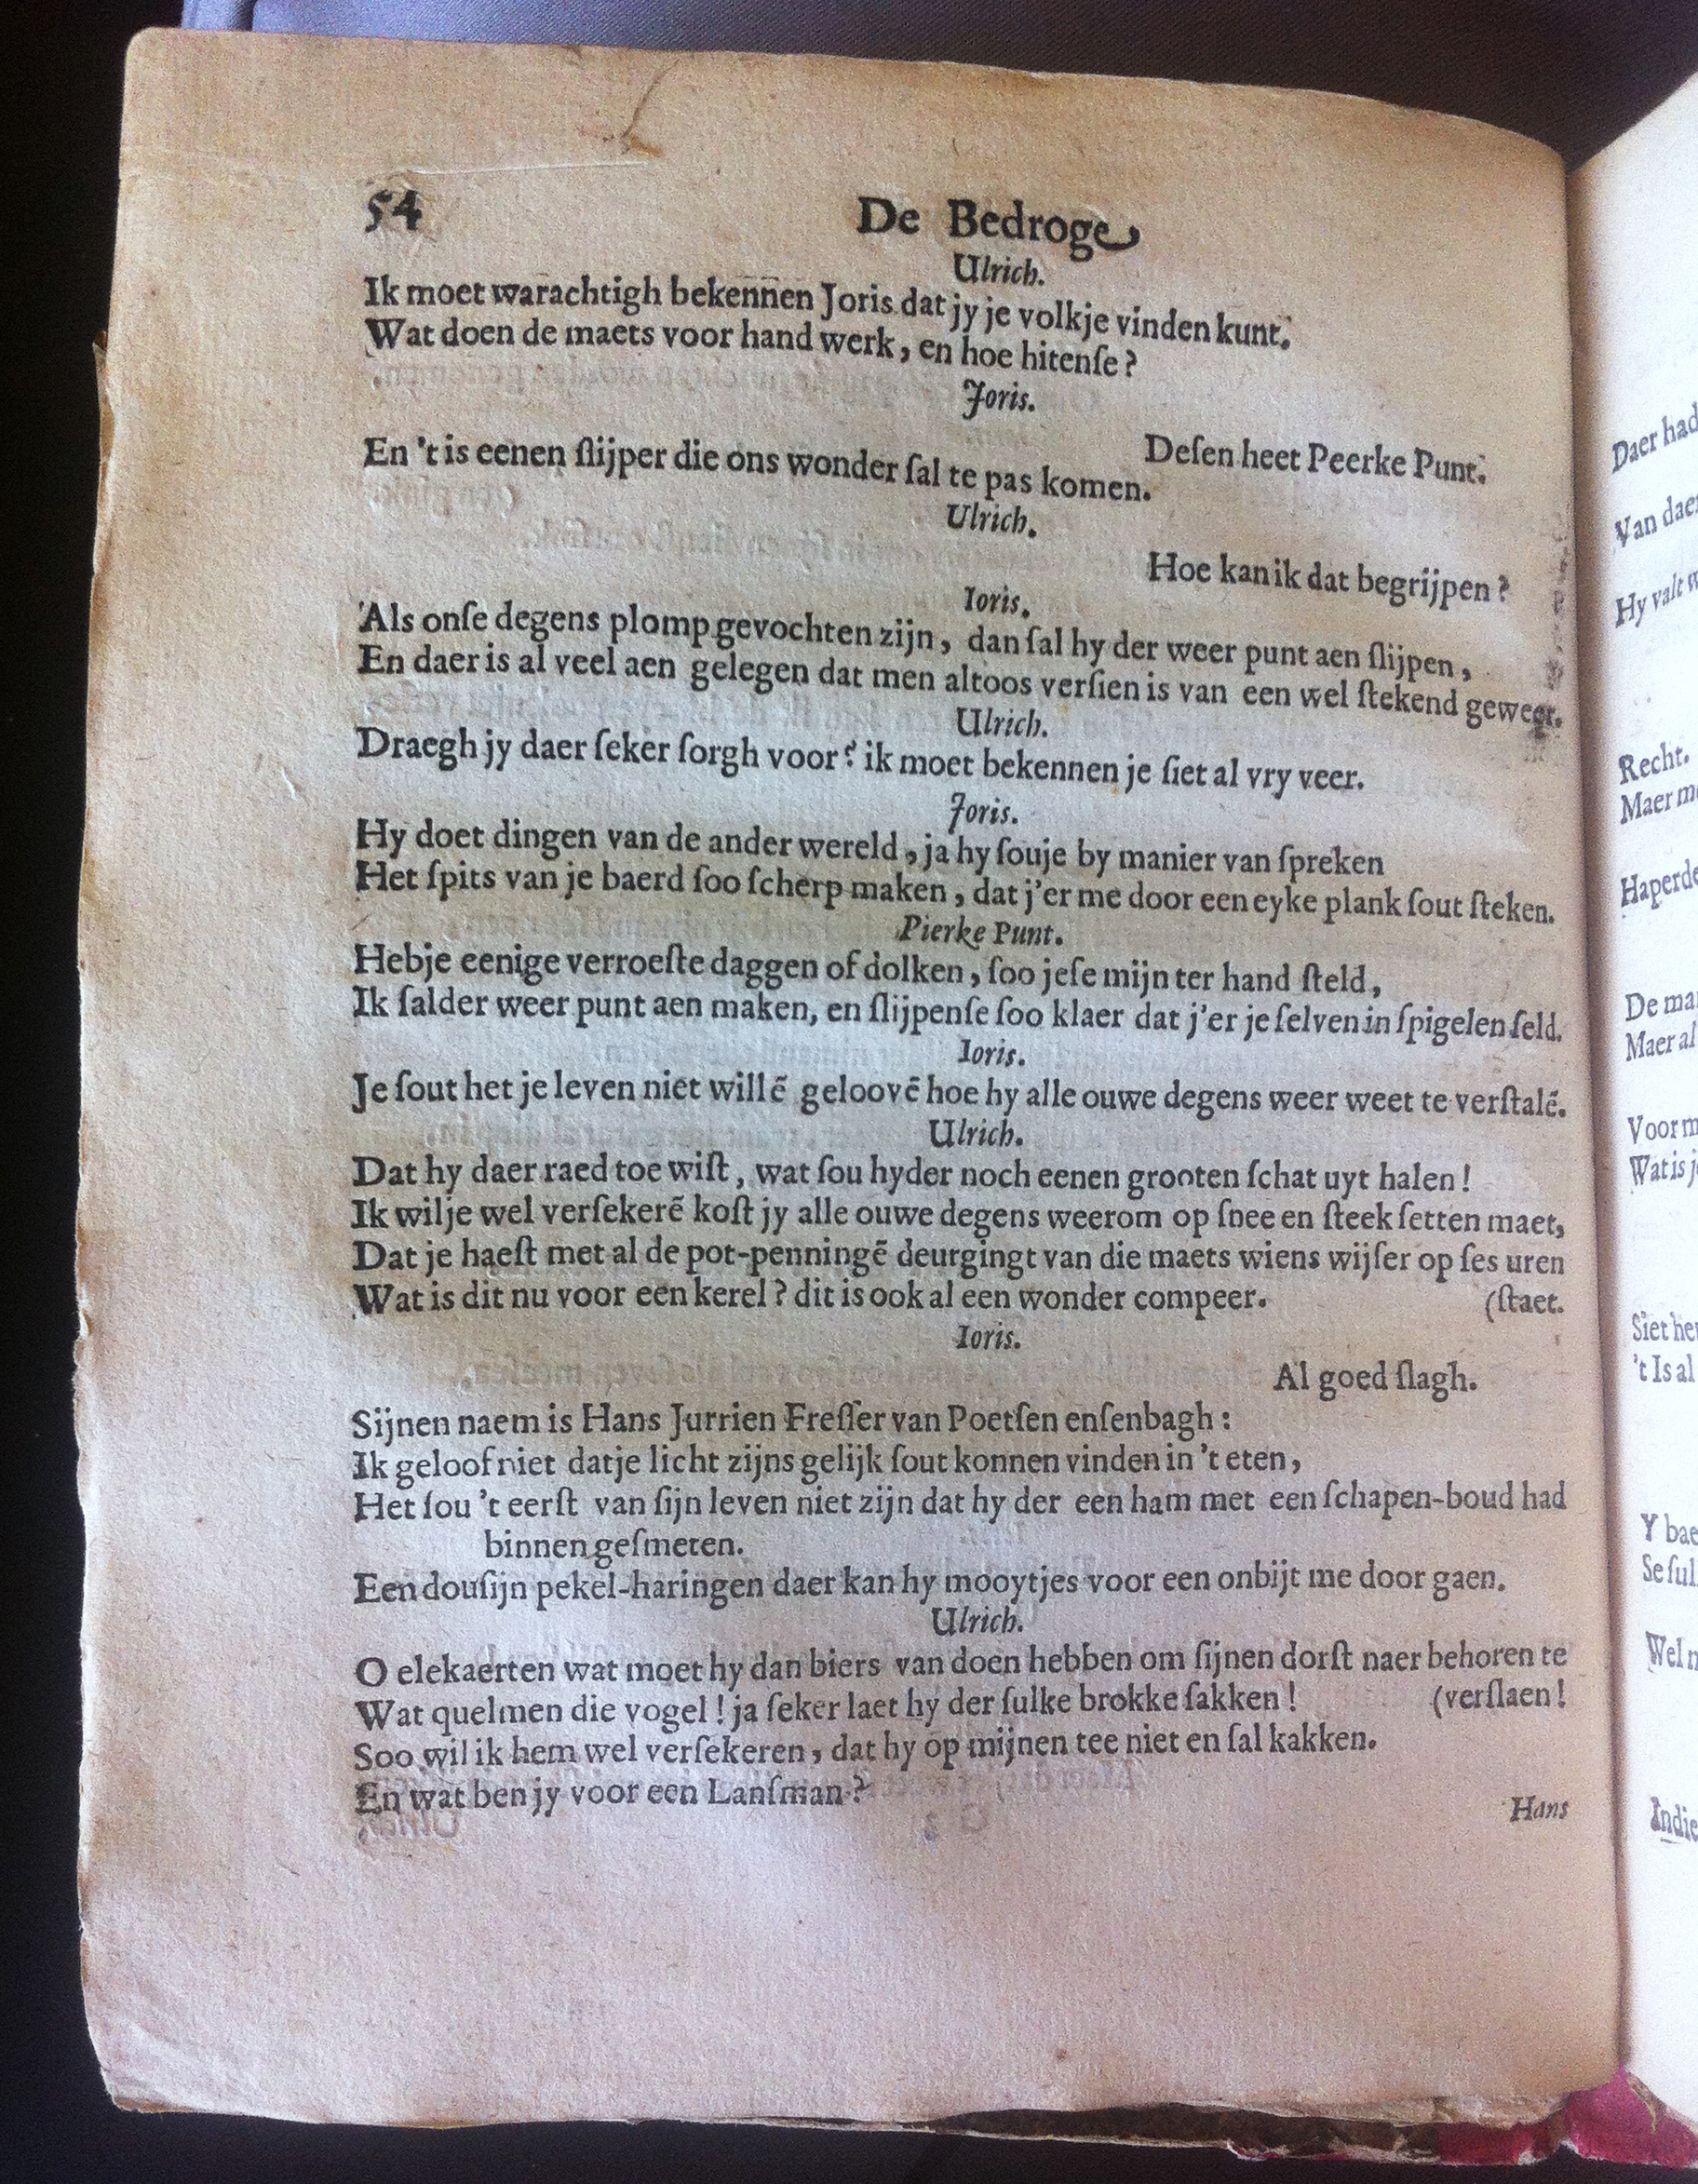 54
De Bedroge
Ulrich.
Ik moet warachtigh bekennen Joris dat jy je volkje vinden kunt.
Wat doen de maets voor hand werk, en hoe hitenſe?
Joris.
Deſen heet Peerke Punt.
En 't is eenen ſlijper die ons wonder ſal te pas komen.
Ulrich.
Hoe kan ik dat begrijpen?
Ioris.
Als onſe degens plomp gevochten zijn, dan ſal hy der weer punt aen ſlijpen,
En daer is al veel aen gelegen dat men altoos verſien is van een wel ſtekend geweer.
Ulrich.
Draegh jy daer ſeker ſorgh voor? ik moet bekennen je ſiet al vry veer.
Joris.
Hy doet dingen van de ander wereld, ja hy ſouje by manier van ſpreken
Het ſpits van je baerd ſoo ſcherp maken, dat j'er me door een eyke plank ſout ſteken.
Pierke Punt.
Hebje eenige verroeſte daggen of dolken, ſoo jeſe mijn ter hand ſteld,
Ik ſalder weer punt aen maken, en ſlijpenſe ſoo klaer dat j'er je ſelven in ſpigelen ſeld.
Ioris.
Je ſout het je leven niet willē geloovē hoe hy alle ouwe degens weer weet te verſtalē.
Ulrich.
Dat hy daer raed toe wiſt, wat ſou hyder noch eenen grooten ſchat uyt halen!
Ik wilje wel verſekerē koſt jy alle ouwe degens weerom op ſnee en ſteek ſetten maet,
Dat je haeſt met al de pot-penningē deurgingt van die maets wiens wijſer op ſes uren
Wat is dit nu voor een kerel? dit is ook al een wonder compeer. (ſtaet.
Ioris.
Al goed ſlagh.
Sijnen naem is Hans Jurrien Freſſer van Poetſen enſenbagh:
Ik geloof niet datje licht zijns gelijk ſout konnen vinden in 't eten,
Het ſou 't eerſt van ſijn leven niet zijn dat hy der een ham met een ſchapen-boud had
binnen geſmeten.
Een douſijn pekel-haringen daer kan hy mooytjes voor een onbijt me door gaen.
Ulrich.
O elekaerten wat moet hy dan biers van doen hebben om ſijnen dorſt naer behoren te
Wat quelmen die vogel! ja ſeker laet hy der ſulke brokke ſakken! (verſlaen!
Soo wil ik hem wel verſekeren, dat hy op mijnen tee niet en ſal kakken.
En wat ben jy voor een Lanſman?
Hans
Daer had
Van daer
Hy valt
Recht.
Maer
Haperde
De
Maer al
Voor
Wat is
Siet
't Is al
Y
Se
Wel